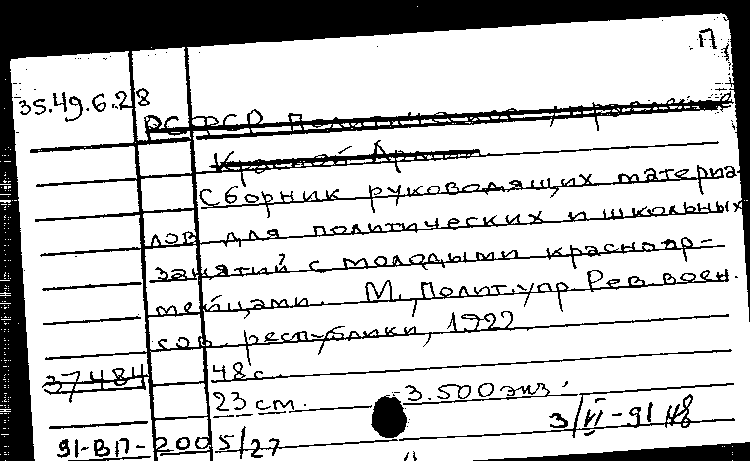 П
35.49.6.28
РСФСР Политическое управление
Красной Армии
Сборник руководящих материа-
лов для политических и школьных
занятий с молодыми красноар-
мейцами. М., Полит.упр. Рев.воен.
сов. республики, 1922
37484
48 с.
23 см. 3.500 экз.
3/VI-91
91-ВП-2005/27